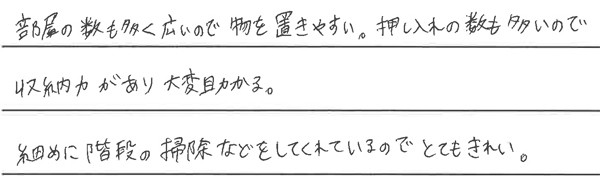 部屋の数も多く広いので物を置きやすい。押し入れの数も多いので
収納力があり大変助かる。
細めに階段の掃除などをしてくれているのでとてもきれい。